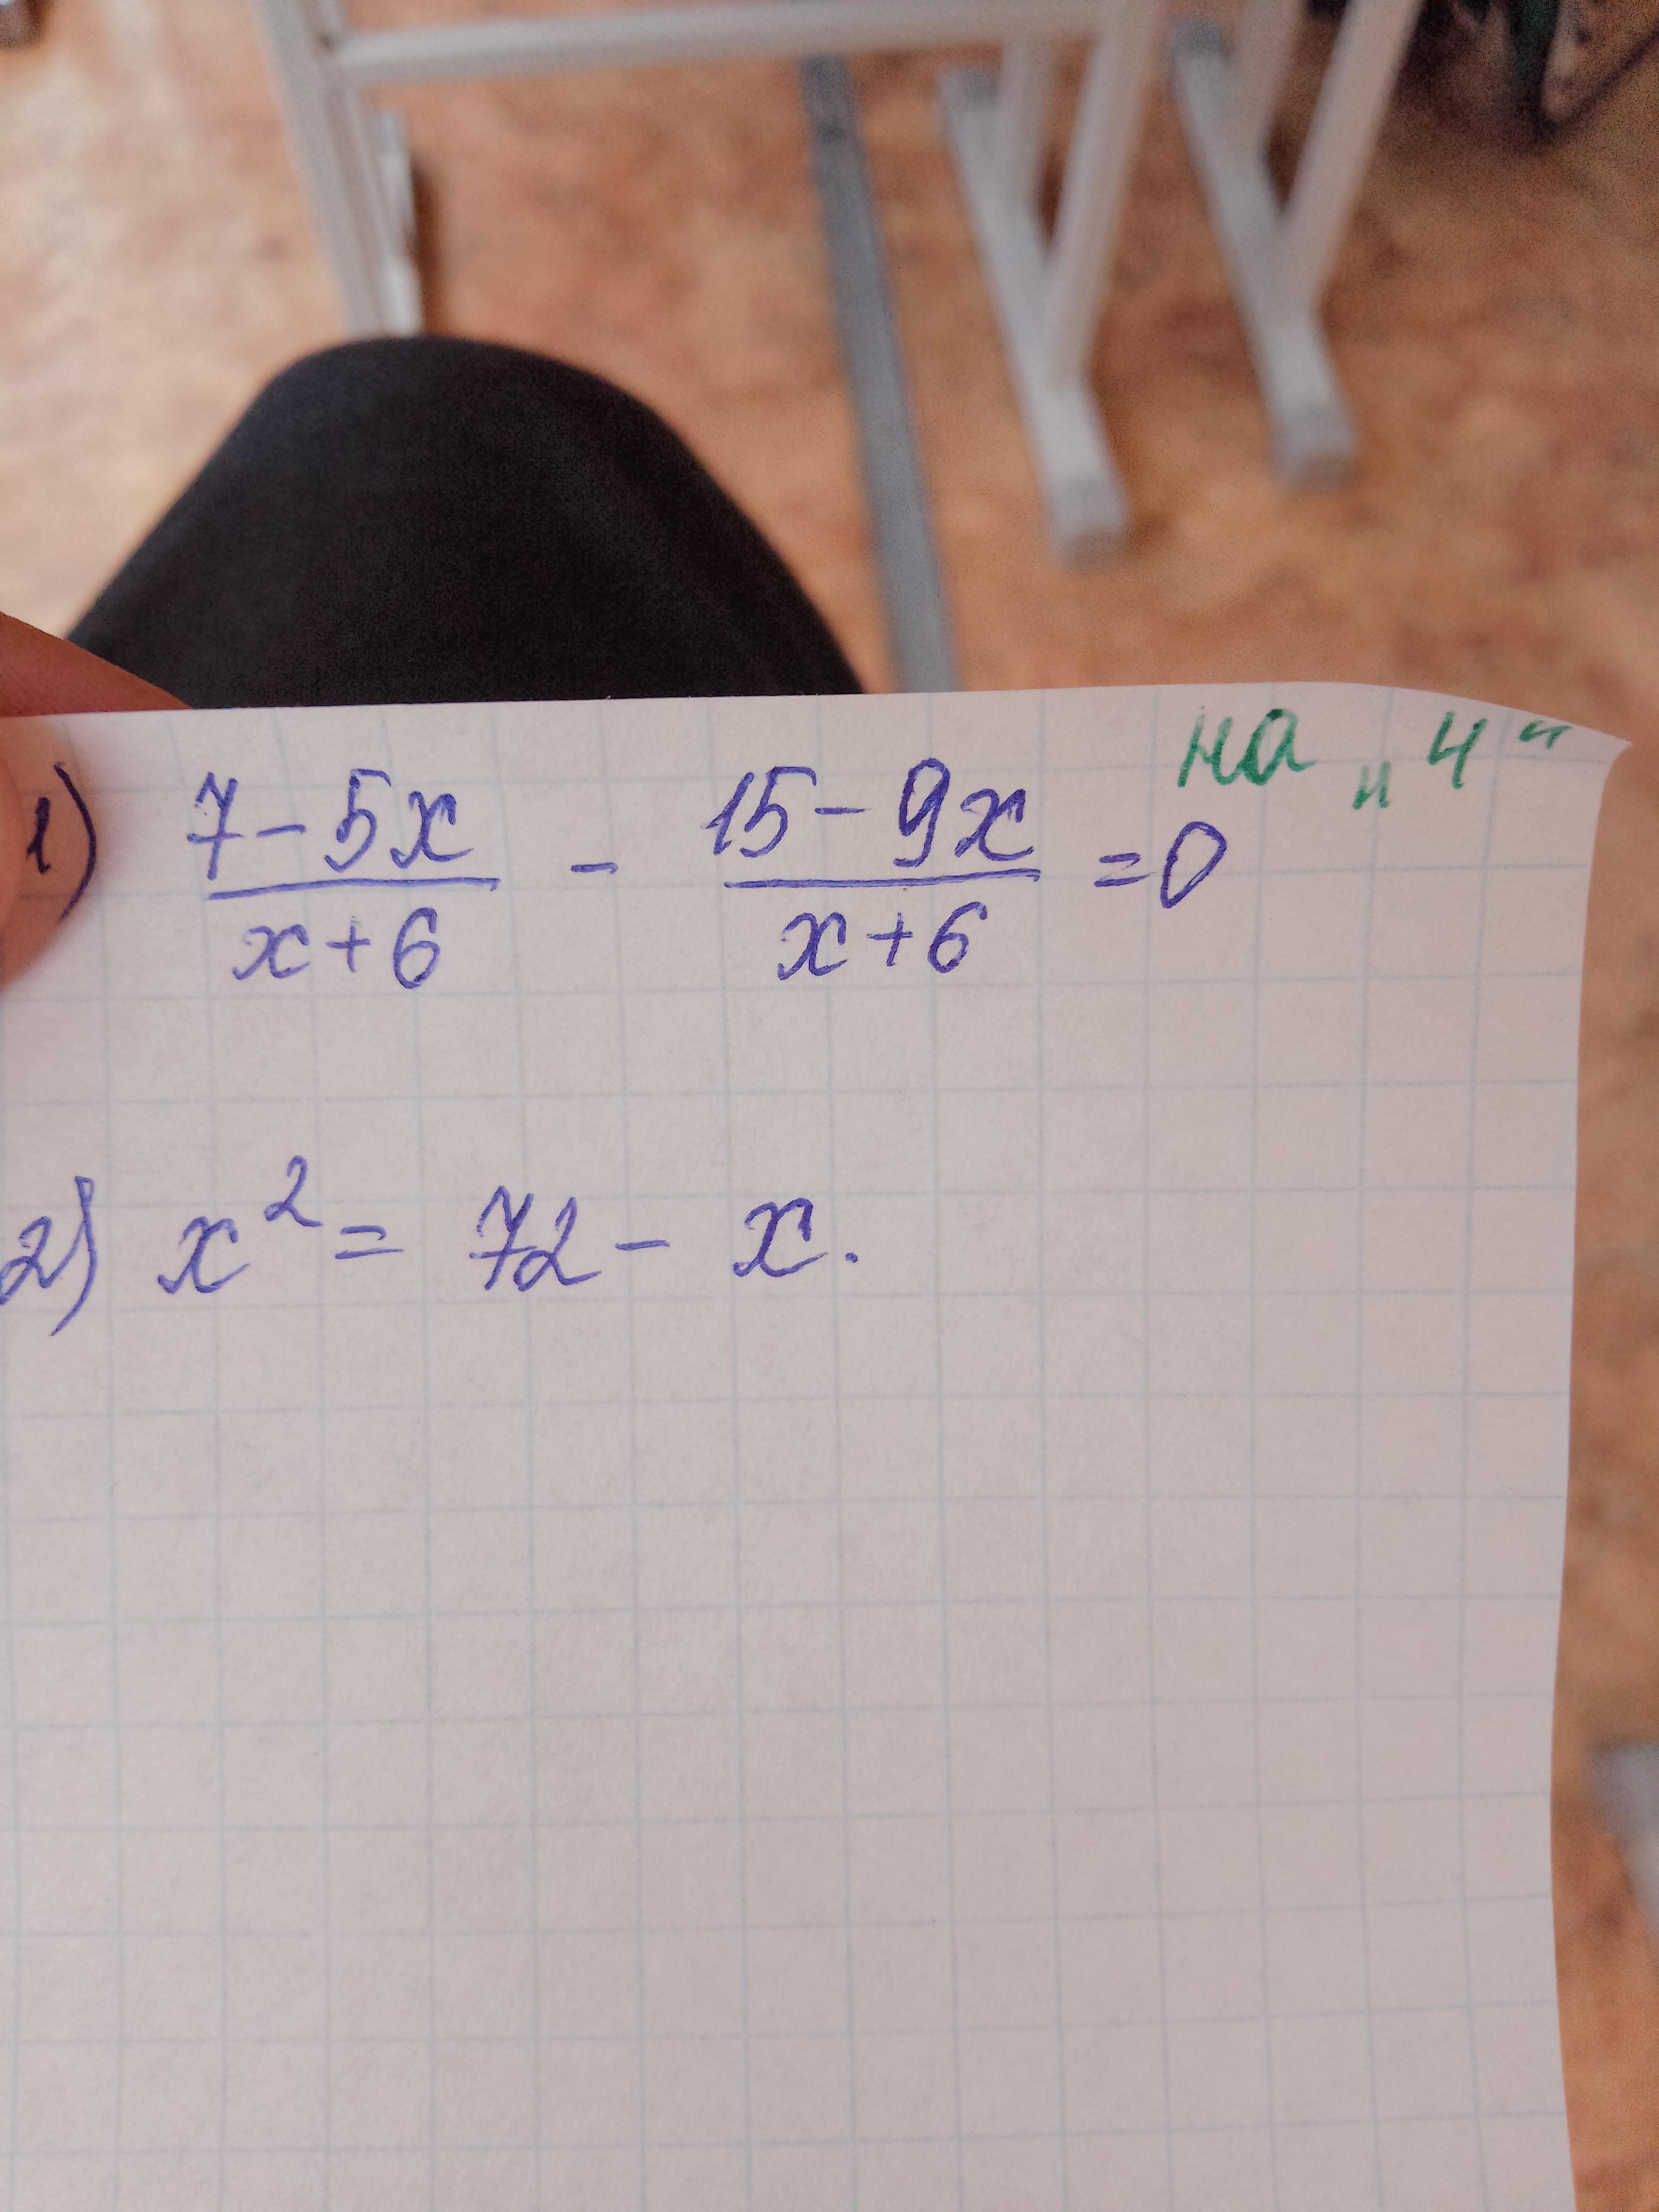 на „4“
1) (7-5x)/(x+6) - (15-9x)/(x+6) =0
2) x² = 72 - x.